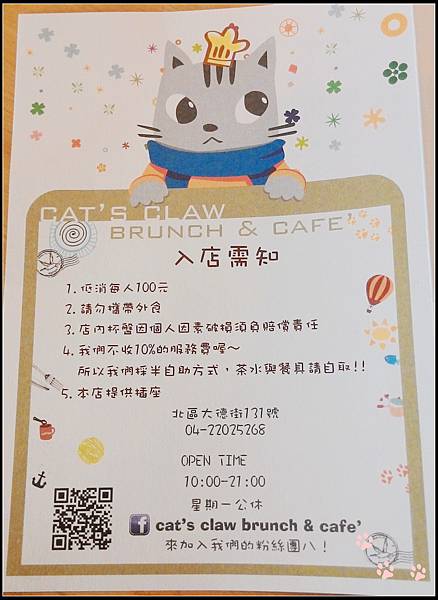 CAT'S CLAW
BRUNCH & CAFE'
入店需知
1.低消每人100元
2.請勿攜帶外食
3.店內杯盤因個人因素破損須負賠償責任
4.我們不收10%的服務費喔～
所以我們採半自助方式，茶水與餐具請自取!!
5.本店提供插座
北區大德街131號
04-22025268
OPEN TIME
10:00-21:00
星期一公休
f cat's claw brunch & cafe'
來加入我們的粉絲團八！